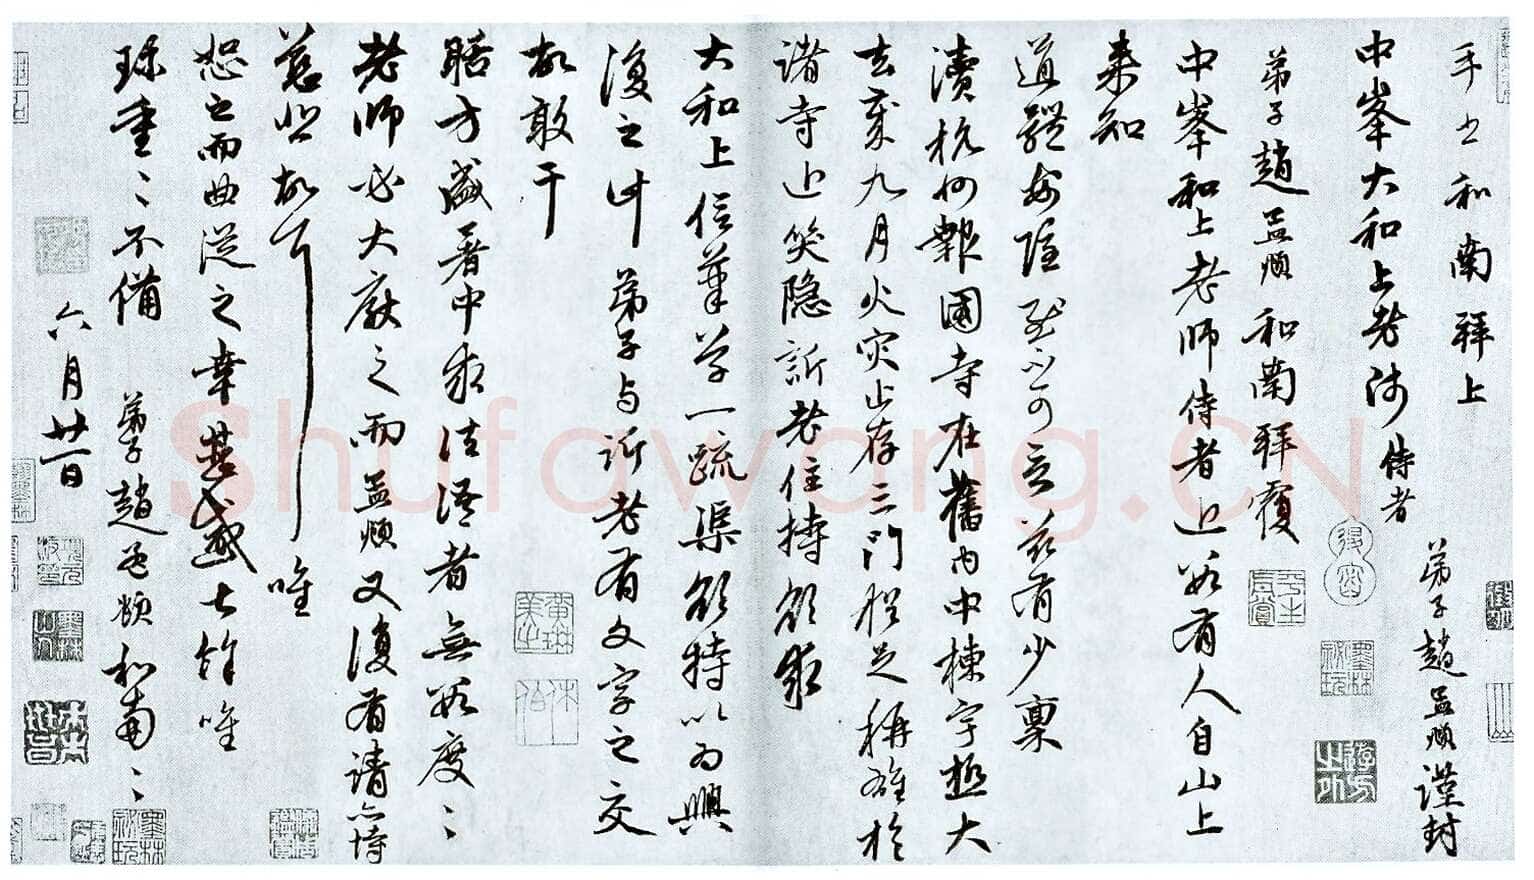 手書和南拜上
中峯大和上老師侍者
弟子趙孟頫謹封
弟子趙孟頫和南拜覆
中峯和上老師侍者近數有人自山上
来知
道體安隱深以為慰茲有少稟
瀆杭州報國寺在舊內中棟宇極大
去歲九月火灾止存三門程足稱雄於
諸寺近笑隱訢老住持欲求
大和上信筆草一疏渠欲持以為興
復之計弟子与訢老有文字之交
故敢干
聒方盛暑中求法語者無數度〻
老師必大厭之而孟頫又復有請亦恃
慈悲故耳唯
恕之而曲從之幸甚感甚餘唯
珎重〻不備弟子趙孟頫和南〻
六月廿一日
Shufawang.CN